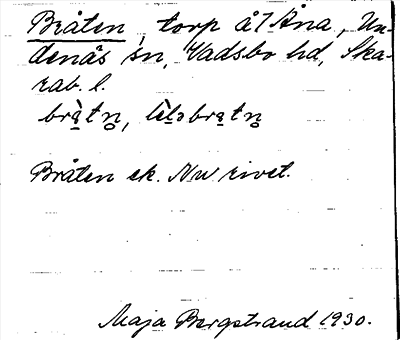 Bråten, torp å 7 Åna, Un-
denäs sn, Vadsbo hd, Ska-
rab. l.
brà̱tn̥, lìtəbra̱tn̥
Bråten ek. Nu rivet.
Maja Bergstrand 1930.